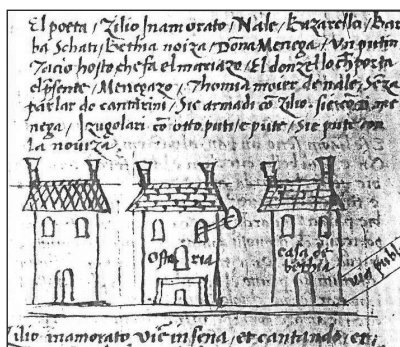 El poeta / Zilio Inamorato / Nale / Bazarello / Bar
ba Schati / Bethia noiza / Dona Menega / Vn putin
Tacio hosto che fa el mariazo / El donzello ch porta
el psente / Menegazo / Thomia moier de nale / Seza
parlar de cantarini / Sie armadi cō Zilio / sie cō me
nega / I zugolari cō otto puti e püte / Sie püte con
la noviza
ostaria
casa de
bethia
via publ
Zilio inamorato viē in sena / et cantando / et